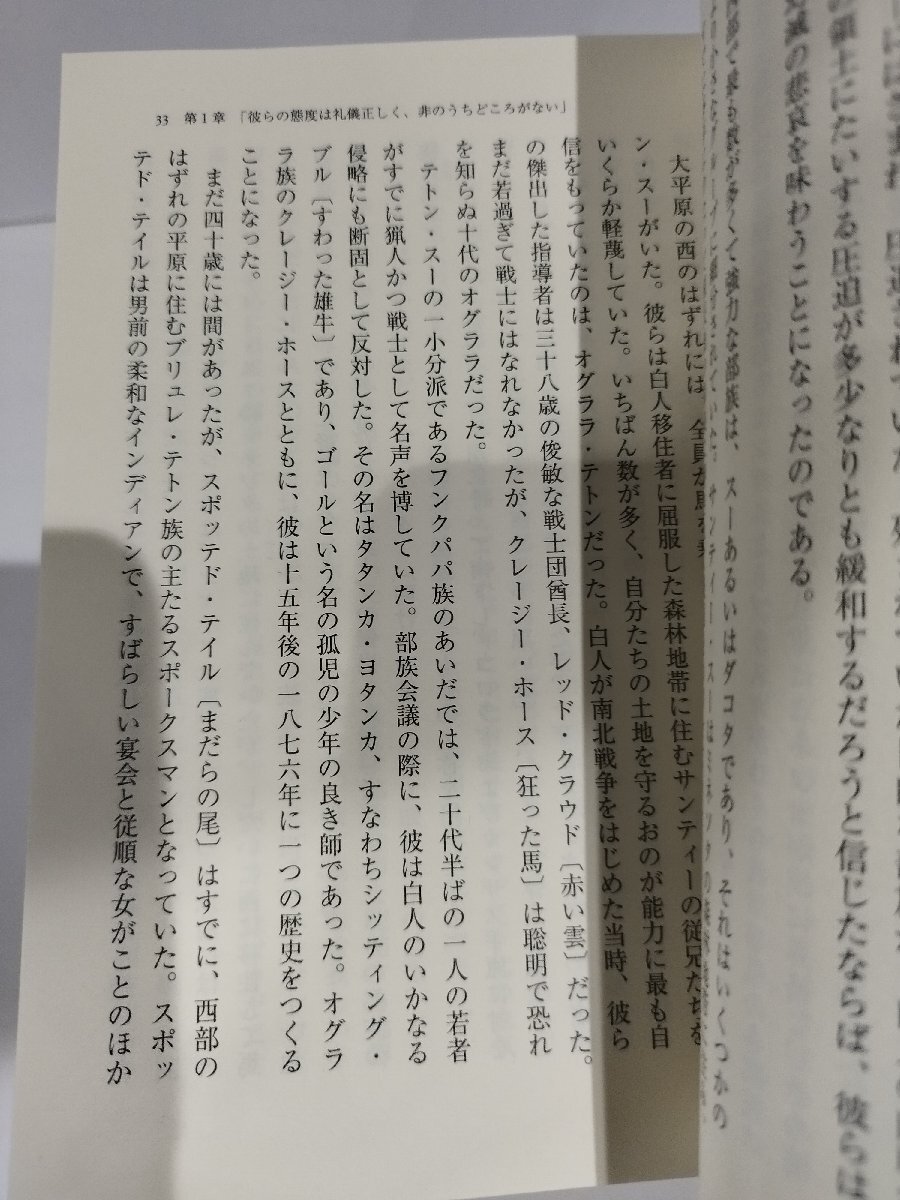 33　第1章　「彼らの態度は礼儀正しく、非のうちどころがない」
大平原の西のはずれには
ン・スーがいた。彼らは白人移住者に屈服した森林地帯に住むサンティーの従兄たちを
いくらか軽蔑していた。いちばん数が多く、自分たちの土地を守るおのが能力に最も自
信をもっていたのは、オグララ・テトンだった。白人が南北戦争をはじめた当時、彼ら
の傑出した指導者は三十八歳の俊敏な戦士団酋長、レッド・クラウド〔赤い雲〕だった。
まだ若過ぎて戦士にはなれなかったが、クレージー・ホース〔狂った馬〕は聡明で恐れ
を知らぬ十代のオグララだった。
テトン・スーの一小分派であるフンクパパ族のあいだでは、二十代半ばの一人の若者
がすでに猟人かつ戦士として名声を博していた。部族会議の際に、彼は白人のいかなる
侵略にも断固として反対した。その名はタタンカ・ヨタンカ、すなわちシッティング・
ブル〔すわった雄牛〕であり、ゴールという名の孤児の少年の良き師であった。オグラ
ラ族のクレージー・ホースとともに、彼は十五年後の一八七六年に一つの歴史をつくる
ことになった。
まだ四十歳には間があったが、スポッテド・テイル〔まだらの尾〕はすでに、西部の
はずれの平原に住むブリュレ・テトン族の主たるスポークスマンとなっていた。スポッ
テド・テイルは男前の柔和なインディアンで、すばらしい宴会と従順な女がことのほか
領土にたいする圧迫が多少なりとも緩和するだろうと信じたならば、彼らは
の悲哀を味わうことになったのである。
強力な部族は、スーあるいはダコタであり、それはいくつかの